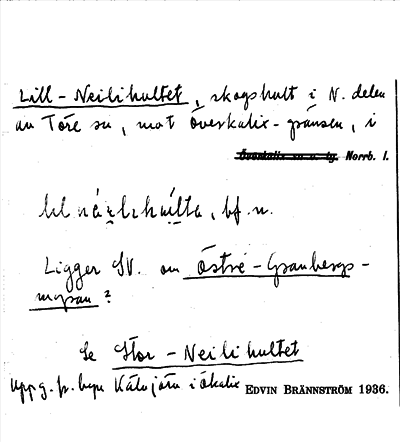 Lill-Neilihultet, skogshult i N. delen
av Töre sn, mot Överkalix-gränsen, i
Överkalix sn o. tg. Norrb. l.
bf. n.
Ligger SV. om Östre-Granbergs-
myran?
Se Stor-Neilihultet
Uppg. fr. byn i Ökalix EDVIN BRÄNNSTRÖM 1936.